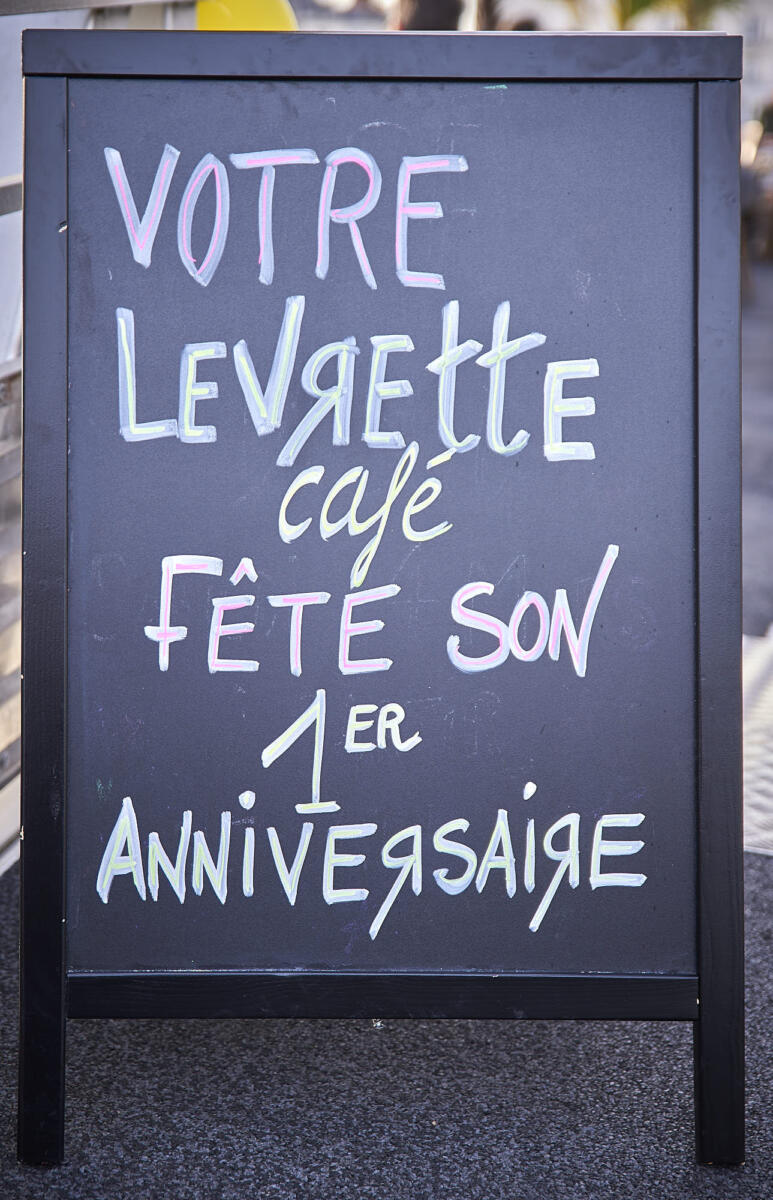 VOTRE
LEVRETTE
café
FÊTE SON
1ER
ANNIVERSAIRE